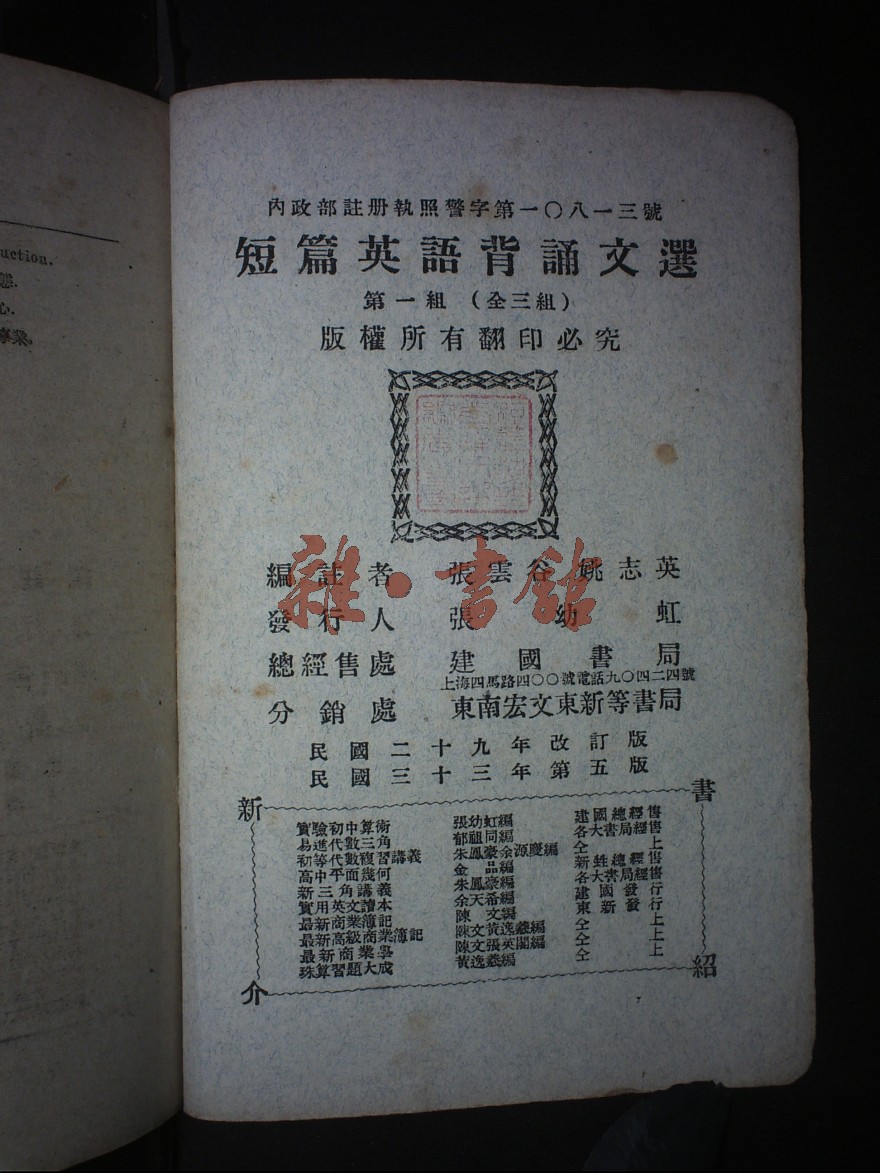 uction.
態.
心.
事業.
內政部註册執照警字第一〇八一三號
短篇英語背誦文選
第一組（全三組）
版權所有翻印必究
編註者 張雲谷 姚志英
發行人 張幼虹
總經售處 建國書局
上海四馬路四〇〇號電話九〇四二四號
分銷處 東南宏文東新等書局
民國二十九年改訂版
民國三十三年第五版
雜·書館
新書介紹
實驗初中算術 張幼虹編 建國總經售
易進代數三角 郁祖同編 各大書局經售
初等代數複習講義 朱鳳豪余源慶編 仝上
高中平面幾何 金品編 新蛙總經售
新三角講義 朱鳳豪編 各大書局經售
實用英文讀本 余天希編 建國發行
最新商業簿記 陳文編 東新發行
最新高級商業簿記 陳文黃逸編 仝上
最新商業學 陳文張英閣編 仝上
珠算習題大成 黃逸編 仝上